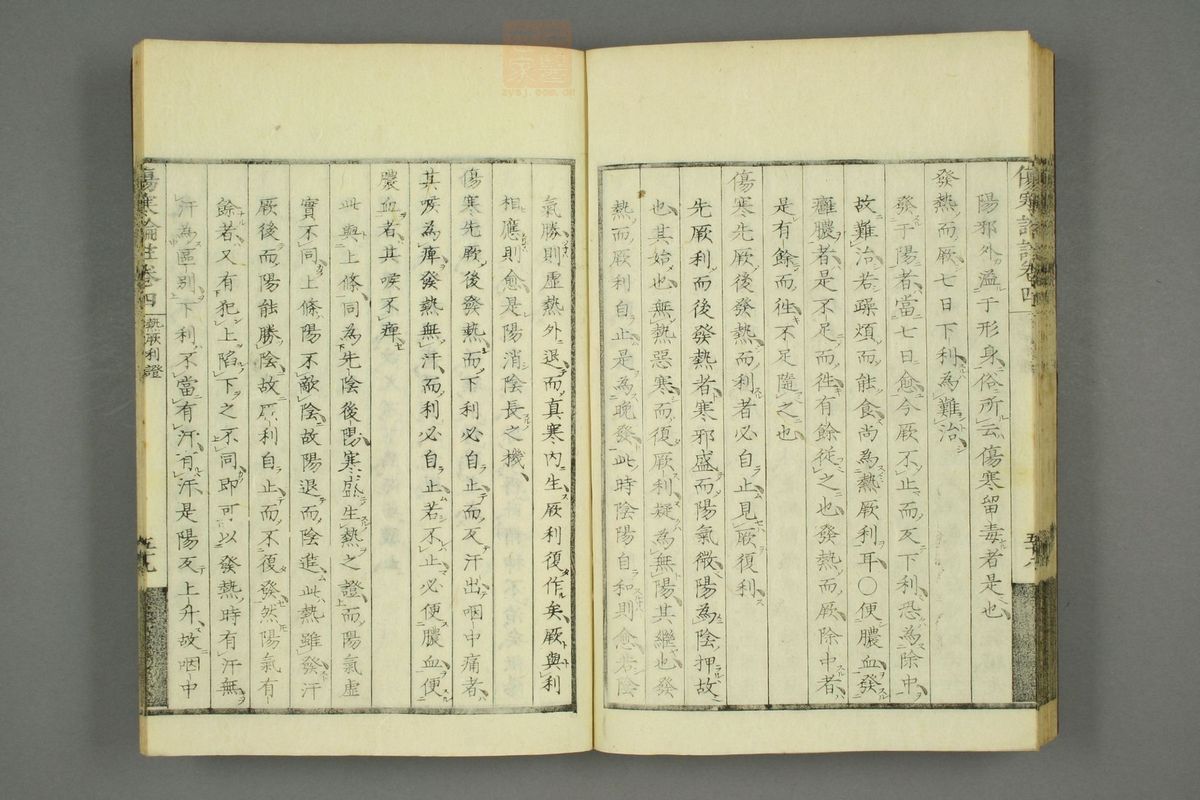 陽邪外溢于形身俗所云傷寒留毒者是也
發熱而厥七日下利為難治
發于陽者當七日愈今厥不止而反下利恐為除中
故難治若躁煩而能食尚為熱厥利耳○便膿血發
癰膿者是不足而徃有餘從之也發熱而厥除中者
是有餘而徃不足隨之也
傷寒先厥後發熱而利者必自止見厥復利
先厥利而後發熱者寒邪盛而陽氣微陽為陰抑故
也其始也無熱惡寒而復厥利疑為無陽其繼也發
熱而厥利自止是為晚發此時陰陽自和則愈若陰
氣勝則虛熱外退而真寒內生厥利復作矣厥與利
相應則愈是陽消陰長之機
傷寒先厥後發熱而下利必自止而反汗出咽中痛者
其喉為痺發熱無汗而利必自止若不止必便膿血便
膿血者其喉不痺
此與上條同為先陰後陽寒盛生熱之證而陽氣虛
實不同上條陽不敵陰故陽退而陰進此熱雖發汗
厥後而陽能勝陰故厥利自止而不復發然陽氣有
餘者又有犯上陷下之不同即可以發熱時有汗無
汗為區別下利不當有汗有汗是陽反上升故咽中
傷寒論註卷四
熱厥利證
五十九
zysj.com.cn